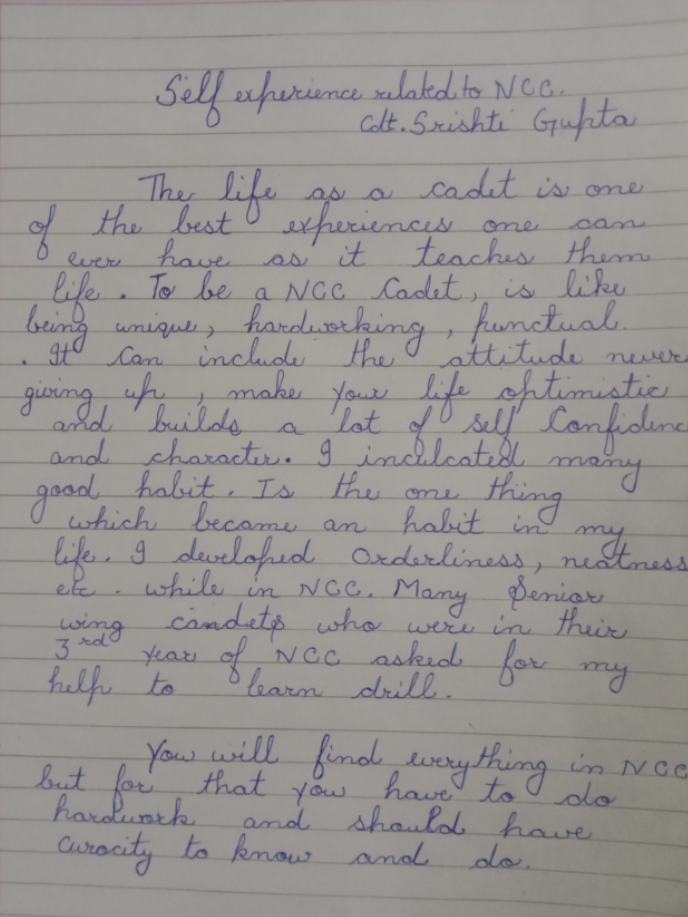 Self experience related to NCC.
Cdt. Srishti Gupta
The life as a cadet is one
of the best experiences one can
ever have as it teaches them
life. To be a NCC Cadet, is like
being unique, hardworking, punctual.
. It Can include the attitude never
giving up, make your life optimistic
and builds a lot of self Confidenc
and character. I inculcated many
good habit. Is the one thing
which became an habit in my
life. I developed Orderliness, neatness
etc. while in NCC. Many Senior
wing candets who were in their
3rd year of NCC asked for my
help to learn drill.
You will find everything in NCC
but for that you have to do
hardwork and should have
curocity to know and do.